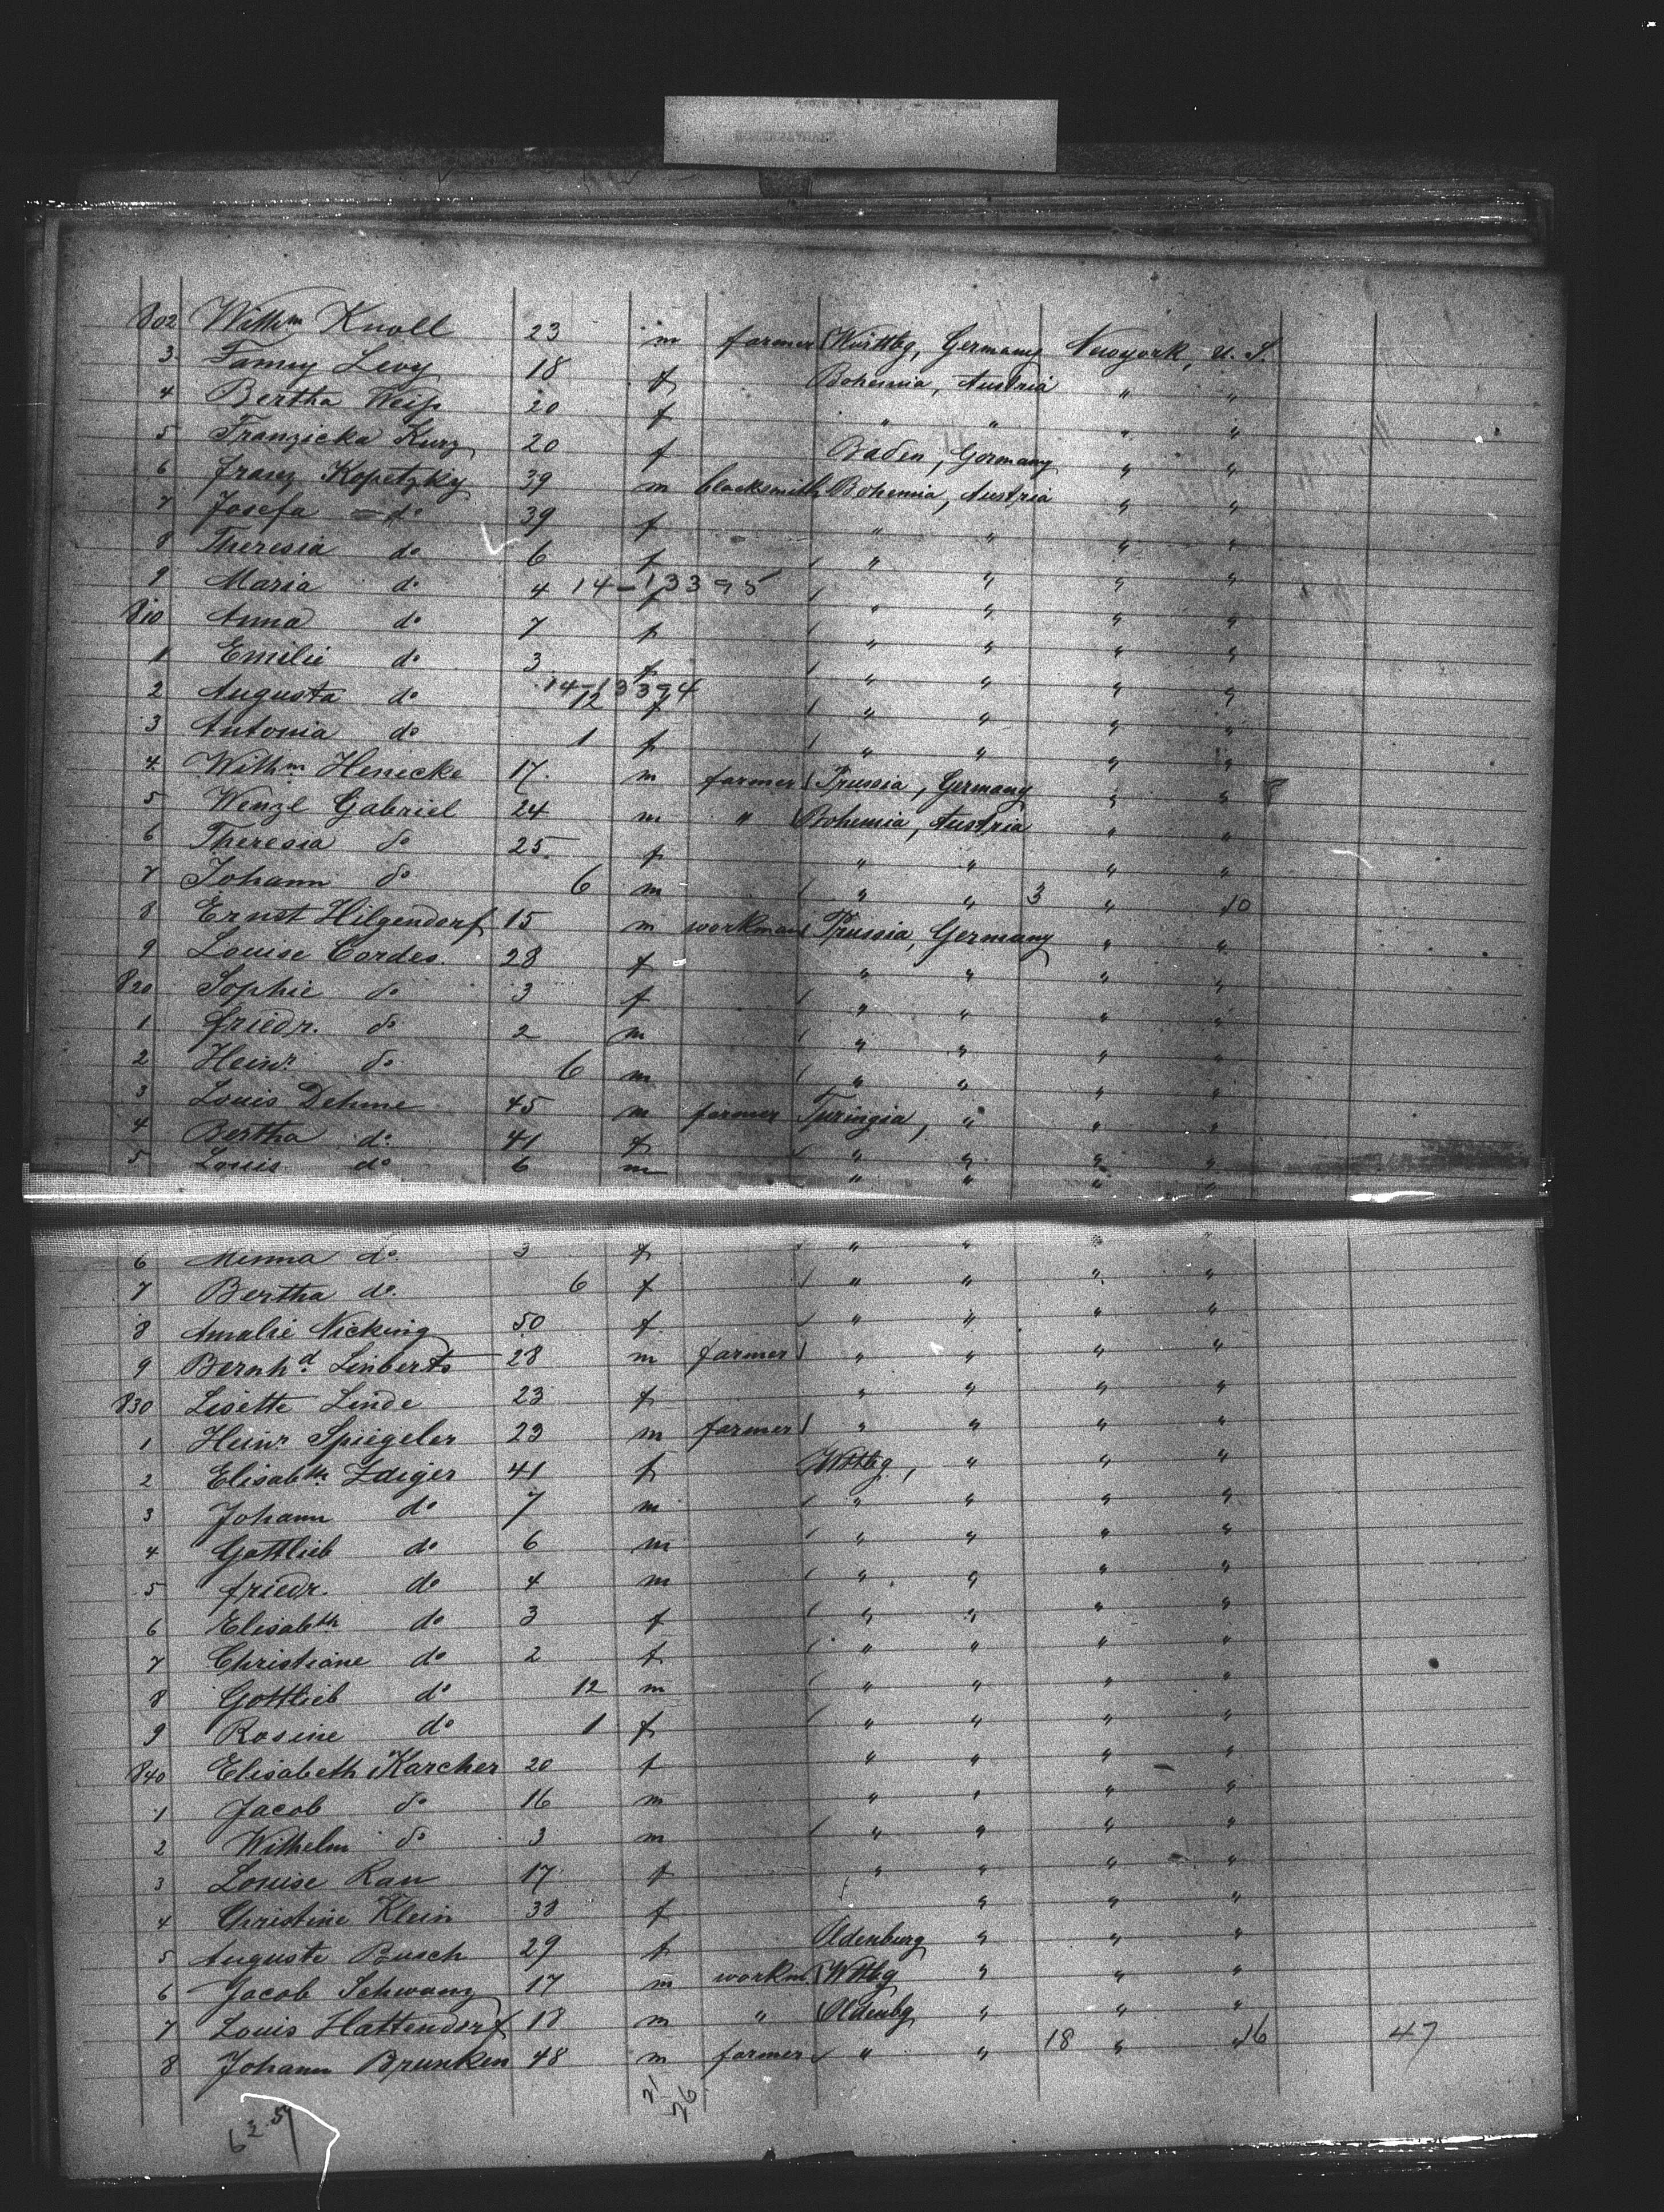 802 Wilhm Knoll 23 m farmer Württbg, Germany Newyork, U. S.
3 Fanny Levy 18 f Bohemia, Austria " "
4 Bertha Weiß 20 f " " " "
5 Franzicka Kurz 20 f Baden, Germany " "
6 Franz Kopetzky 39 m blacksmith Bohemia, Austria " "
7 Josefa do 39 f " " " "
8 Theresia do 6 f " " " "
9 Maria do 4 14-13395 f " " " "
810 Anna do 7 f " " " "
1 Emilie do 3 f " " " "
14-13394
2 Augusta do 12 f " " " "
3 Antonia do 1 f " " " "
4 Wilhm Henecke 17 m farmer Prussia, Germany " "
5 Wenzl Gabriel 24 m " Bohemia, Austria " "
6 Theresia do 25 f " " " "
7 Johann do 6 m " " 3 " 10
8 Ernst Hilgendorf 15 m workman Prussia, Germany " "
9 Louise Cordes 28 f " " " "
820 Sophie do 3 f " " " "
1 Friedr. do 2 m " " " "
2 Heinr. do 6 m " " " "
3 Louis Dehme 45 m farmer Turingia, " " "
4 Bertha do 41 f " " " "
5 Louis do 6 m " " " "
6 Minna do 3 f " " " "
7 Bertha do. 6 f " " " "
8 Amalie Nicking 50 f " " " "
9 Bernhd Linberts 28 m farmer " " " "
830 Lisette Linde 23 f " " " "
1 Heinr Spiegeler 23 m farmer " " " "
2 Elisabth Zaiger 41 f Wttbg, " " "
3 Johann do 7 m " " " "
4 Gottlieb do 6 m " " " "
5 Friedr. do 4 m " " " "
6 Elisabth do 3 f " " " "
7 Christiane do 2 f " " " "
8 Gottlieb do 12 m " " " "
9 Rosine do 1 f " " " "
840 Elisabeth Karcher 20 f " " " "
1 Jacob do 16 m " " " "
2 Wilhelm do 3 m " " " "
3 Louise Rau 17 f " " " "
4 Christine Klein 38 f " " "
5 Auguste Busch 29 f Oldenburg " " "
6 Jacob Schwanz 17 m workm. Wttbg " " "
7 Louis Hattendorf 18 m " Oldenbg " " "
8 Johann Brunken 48 m farmer " " 18 " 16 47
21
26